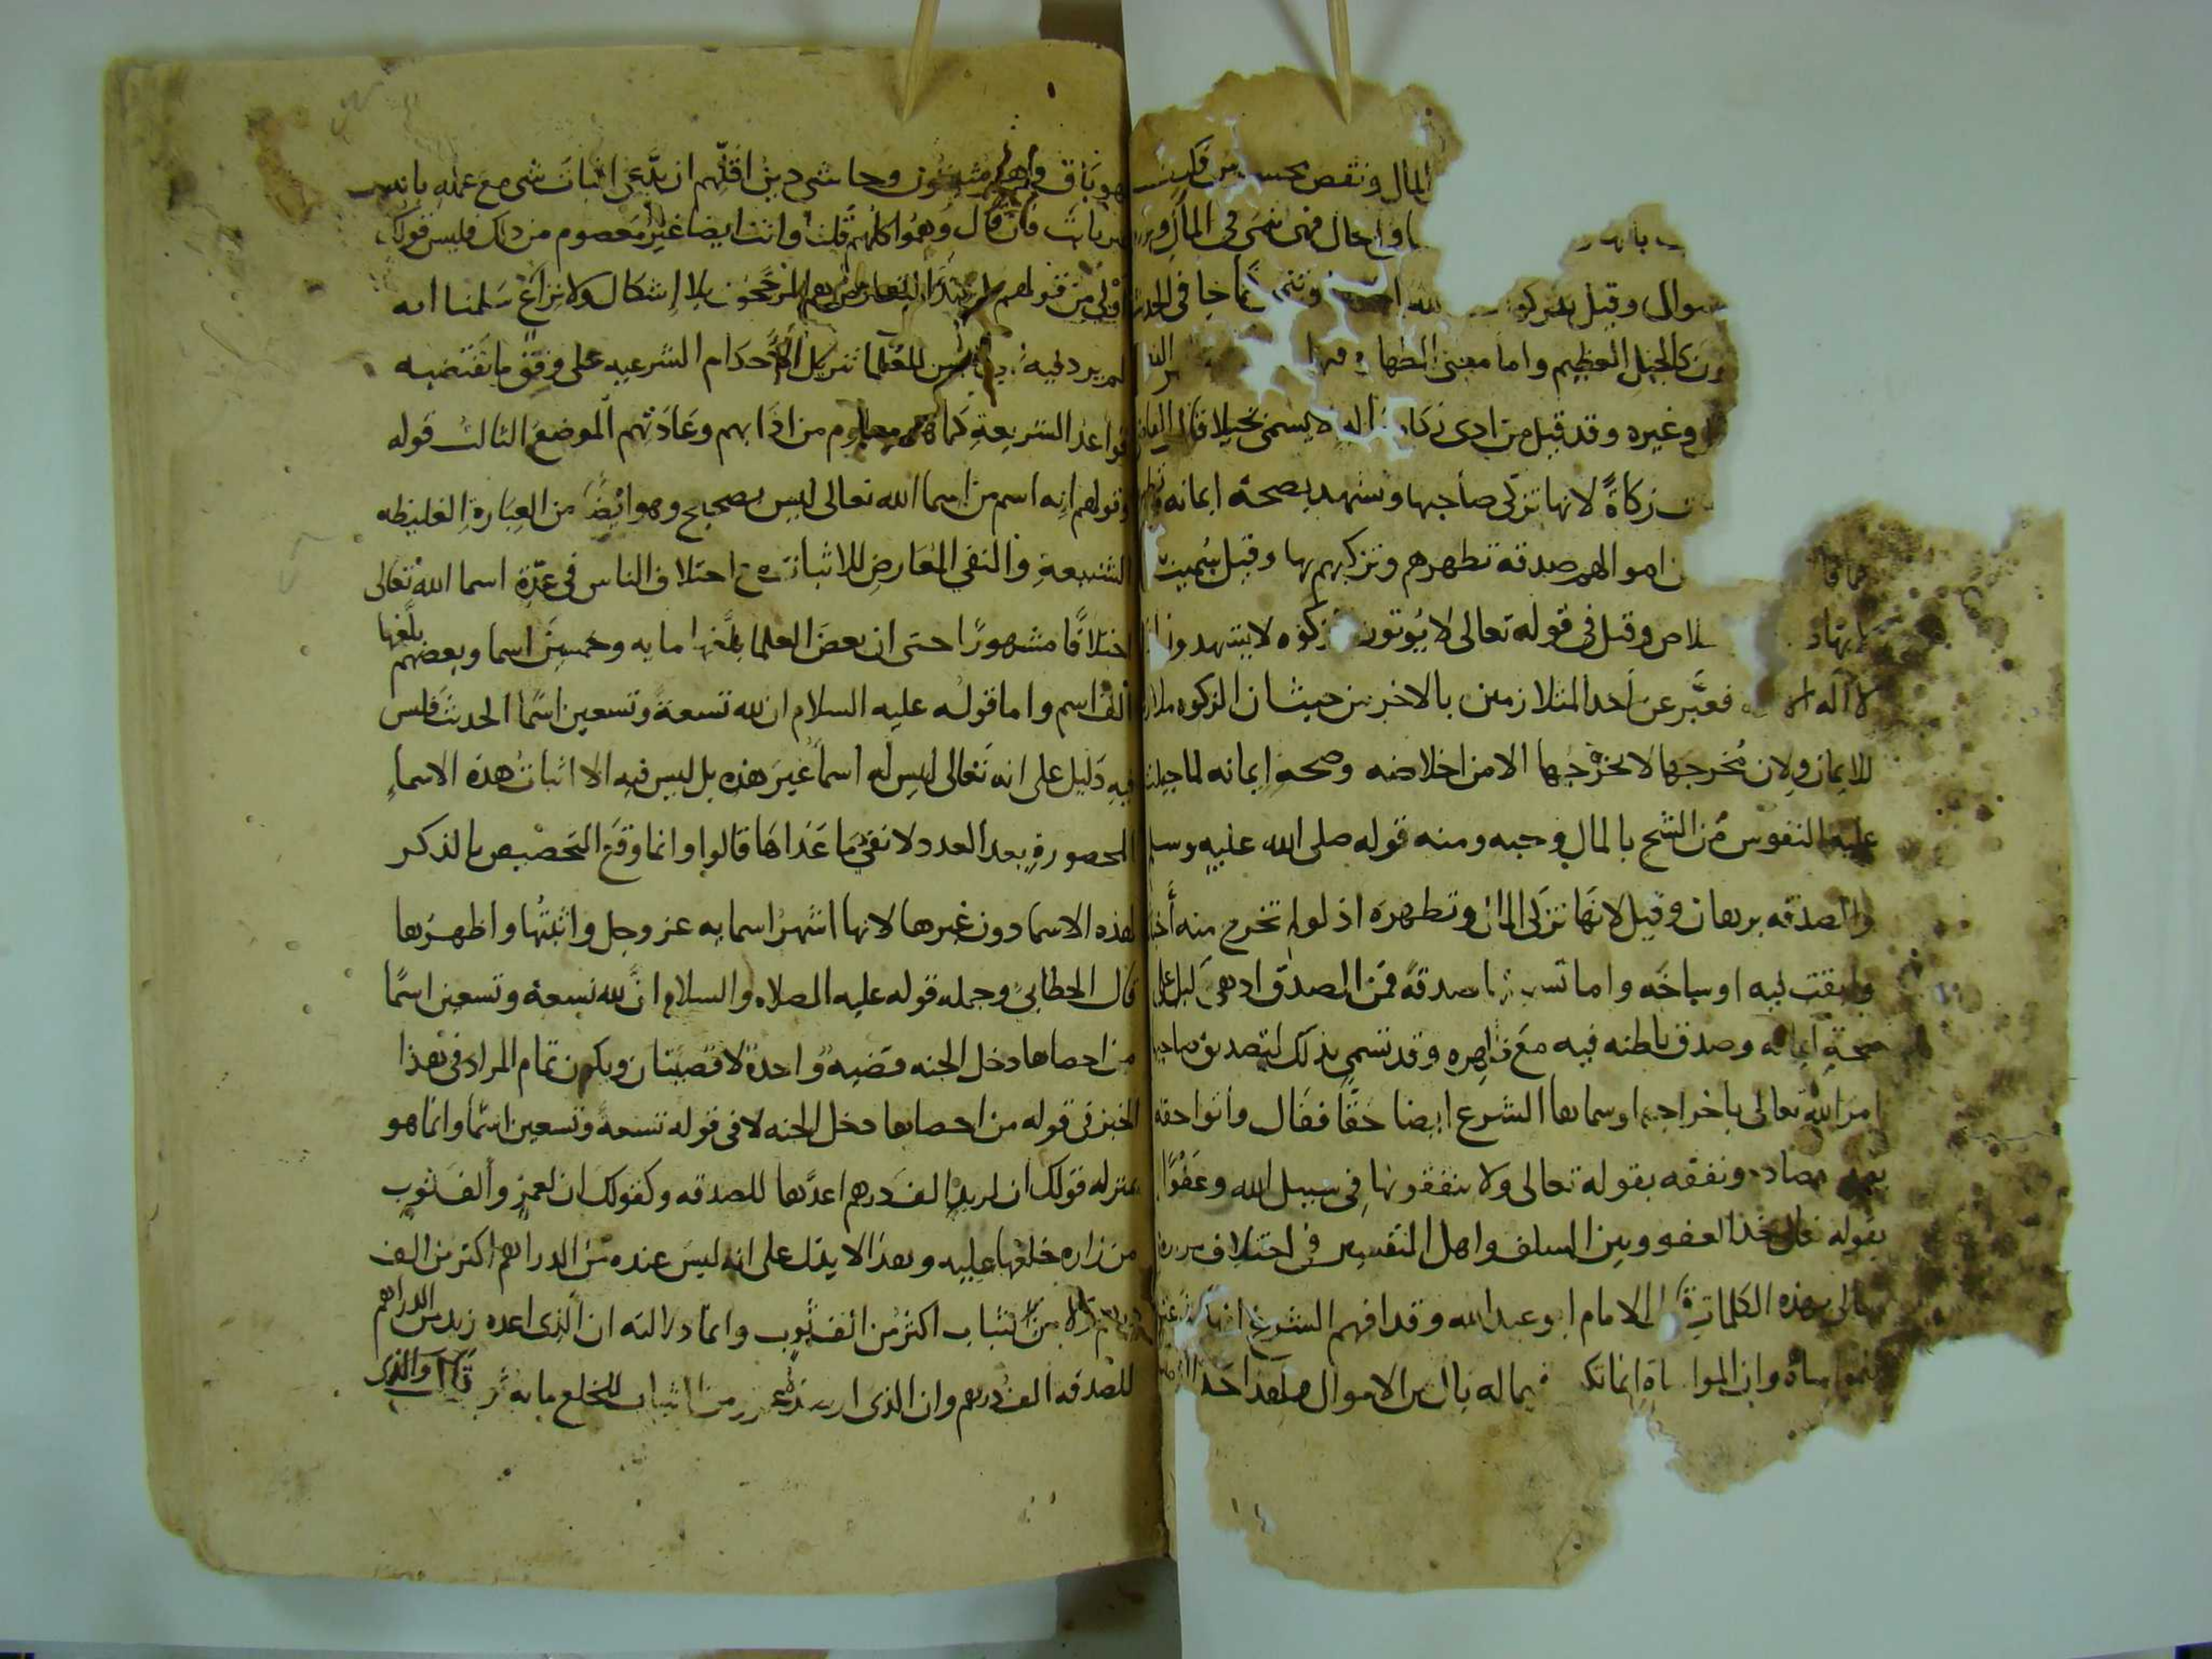 المال ونقص بحسب من
او احال فهى تنمى فى المال
سوال وقيل يذكو
كالجبل العظيم واما معنى الطهارة
وغيره وقد قيل من ادى زكاة لا يسمى بخيلا قال
زكاةً لانها تزكى صاحبها وتشهد بصحة ايمانه
اموالهم صدقة تطهرهم وتزكيهم بها وقيل سُميت
وقيل فى قوله تعالى لا يُوتون الزكوة لا يشهدون
لا اله الا فعبَّر عن احد المتلازمين بالاخر من حيث ان الزكوه
للايمان ولان مُخرجها لا يخرجها الا من اخلاصه وصحة ايمانه لما جبلت
عليه النفوس من الشح بالمال وحبه ومنه قوله صلى الله عليه وسلم
والصدقه برهان وقيل لانها تزكى المال وتطهره اذ لو لم تخرج منه
وابقت فيه اوساخه واما تسميتها صدقةً فمن الصدق اذ هى دليل على
صحة ايمانه وصدق باطنه فيه مع ظاهره وقد تسمى بذلك لتصديق صاحبها
امر الله تعالى باخراجها وسماها الشرع ايضا حقًّا فقال واتوا حقه
يوم حصاده ونفقه بقوله تعالى ولا ينفقونها فى سبيل الله وعَفْوًا
بقوله تعالى خذ العفو وبين السلف واهل التفسير فى اختلاف
بهذه الكلمات قال الامام ابو عبدالله وقد افهم الشرع انها
مواساة وان المواساة انما تكون فيما له بال من الاموال فلهذا حد
هو باق وهم مثبتون وحاشى دين اقلّهم ان يدَّعى اثبات شى مع علمه بانه ليس
بثابت فان قال وَهمُوا كلهم قلت وانت ايضا غير معصوم من ذلك فليس قولك
اولى من قولهم بل عند التعارض هم المرجَّحون بلا إشكال ولا نزاع سلمنا انه
لم يرد فيه للعلما تنزيل الأحكام الشرعيه على وفق ما تقتضيه
قواعد الشريعة كما هو معلوم من ادابهم وعادتهم الموضع الثالث قوله
وقولهم انه اسم من اسما الله تعالى ليس بصحيح وهو ايضًا من العبارة الغليظه
الشنيعة والنفى المُعارض للاثبات مع اختلاف الناس فى عدّة اسما الله تعالى
اختلافًا مشهورًا حتى ان بعض العلما بلَّغها مايه وخمسين اسما وبعضهم بلَّغها
الف اسم واما قوله عليه السلام ان لله تسعةً وتسعين اسما الحديث فليس
فيه دليل على انه تعالى ليس له اسما غير هذه بل ليس فيه الا اثبات هذه الاسماء
المحصورة بعد العدد ولا نفى ما عداها قالوا وانما وقع التخصيص بالذكر
لهذه الاسما دون غيرها لانها اشهر اسمايه عز وجل واثبتُها واظهرُها
قال الخطابىُّ وجمله قوله عليه الصلاه والسلام انَّ لله تسعة وتسعين اسمًا
من احصاها دخل الجنه قضيةٌ واحدة لا قضيتان ويكون تمام المراد فى هذا
الخبر فى قوله من احصاها دخل الجنه لا فى قوله تسعةً وتسعين اسمًا وانما هو
بمنزله قولك ان لزيدٍ الف درهم اعدَّها للصدقه وكقولك ان لعمرٍو الف ثوب
من زاره خلعها عليه وهذا لا يدل على انه ليس عنده من الدراهم اكثر من الف
درهم ولا من الثياب اكثر من الف ثوب وانما دلالته ان الذى اعده زيد من الدراهم
للصدقه الف درهم وان الذى ارصده عمرو من الثياب للخلع ماية قال والذى